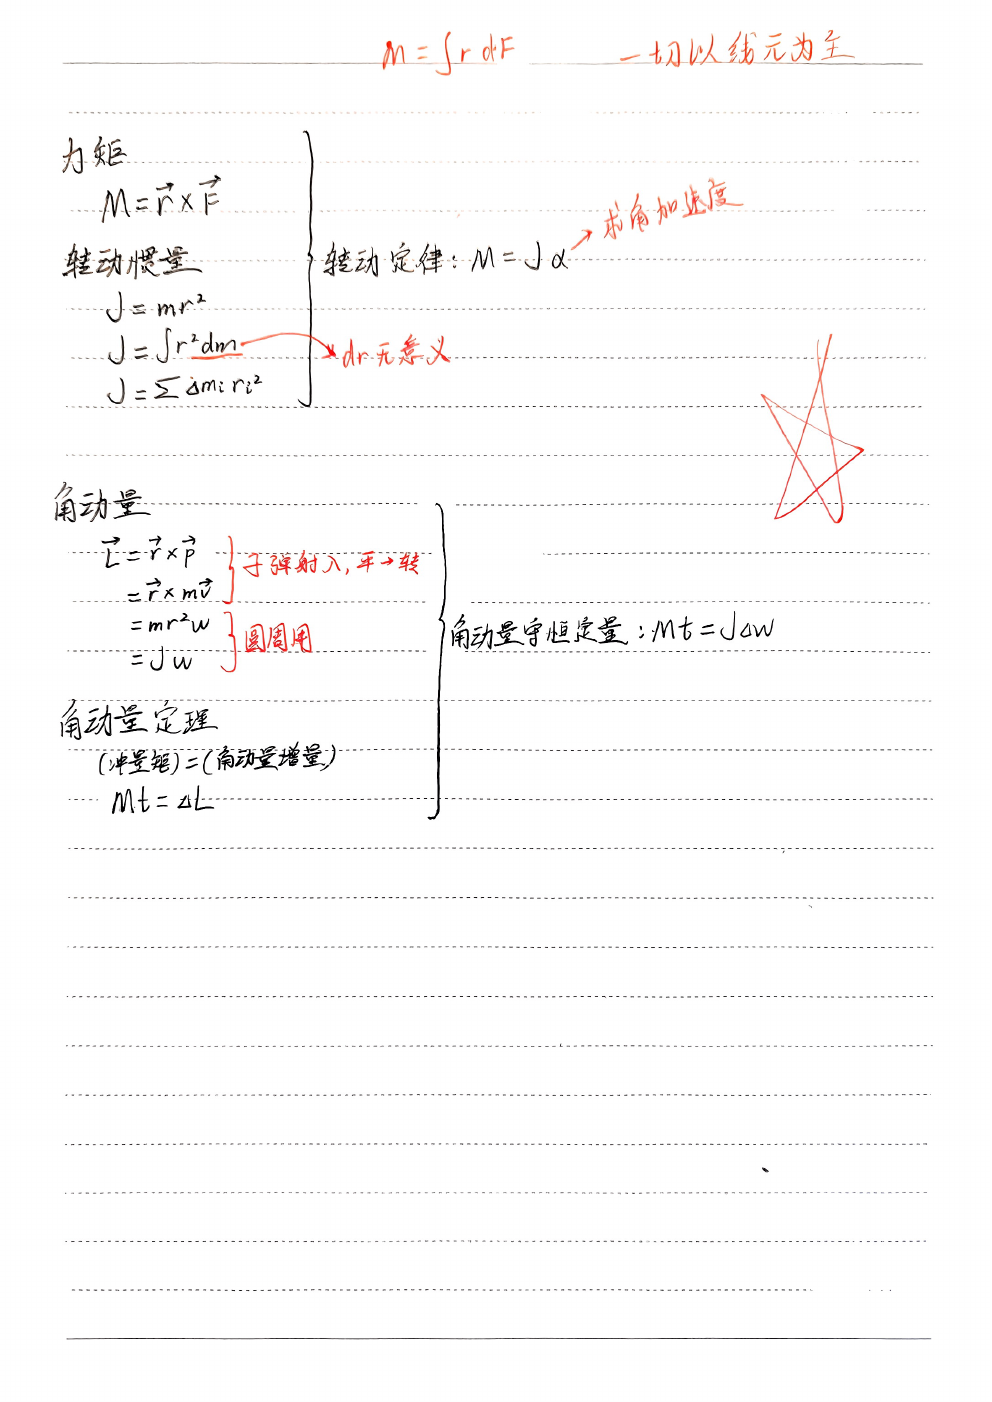 M = ∫r dF 一切以线元为主
力矩
M = r⃗ × F⃗
转动惯量
J = mr²
J = ∫r²dm → dr无意义
J = Σ Δmᵢ rᵢ²
转动定律: M = Jα → 求角加速度
角动量
L⃗ = r⃗ × p⃗
= r⃗ × mv⃗
子弹射入, 平→转
= mr²w
= Jw
圆周用
角动量定理
(冲量矩) = (角动量增量)
Mt = ΔL
角动量守恒定量: Mt = JΔw